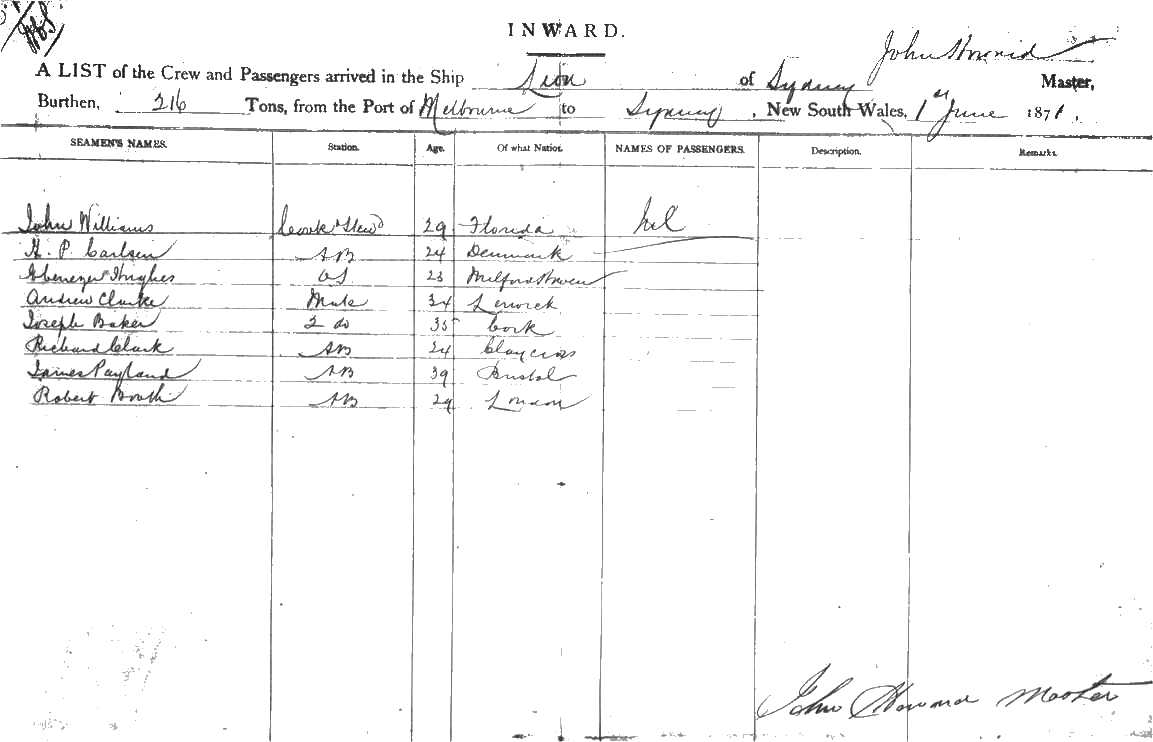 INWARD.
John Howard
A LIST of the Crew and Passengers arrived in the Ship Lion of Sydney Master,
Burthen, 216 Tons, from the Port of Melbourne to Sydney, New South Wales, 1st June 1871.
SEAMEN'S NAMES. Station. Age. Of what Nation. NAMES OF PASSENGERS. Description. Remarks.
John Williams Cook & Stewd 29 Florida Nil
H. P. Carlsen AB 24 Denmark
Ebenezer Hughes OS 23 Milford Haven
Andrew Clarke Mate 34 Lerwick
Joseph Baker 2 do 35 Cork
Richard Clark AB 24 Claycross
James AB 39 Bristol
Robert Booth AB 29 London
John Howard Master